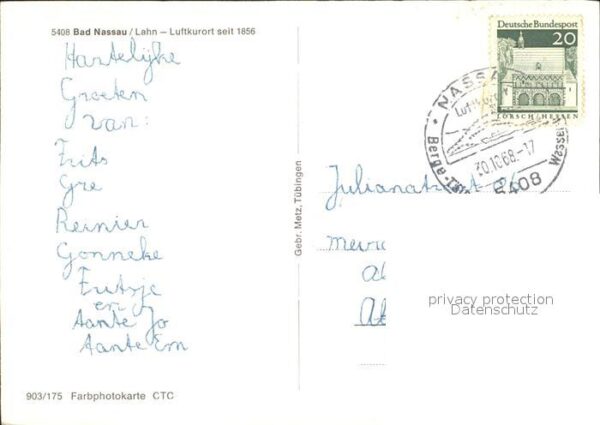 5408 Bad Nassau / Lahn – Luftkurort seit 1856
Hartelijke
Groeten
van:
Frits
Gre
Reinier
Gonneke
Fritsje
en
Tante Jo
Tante Em
903/175 Farbphotokarte CTC
Gebr. Metz, Tübingen
Deutsche Bundespost
20
LORSCH/HESSEN
NASSAU
Berge
Wasser
10.68.-17
5408
Julianastraat 26
privacy protection
Datenschutz